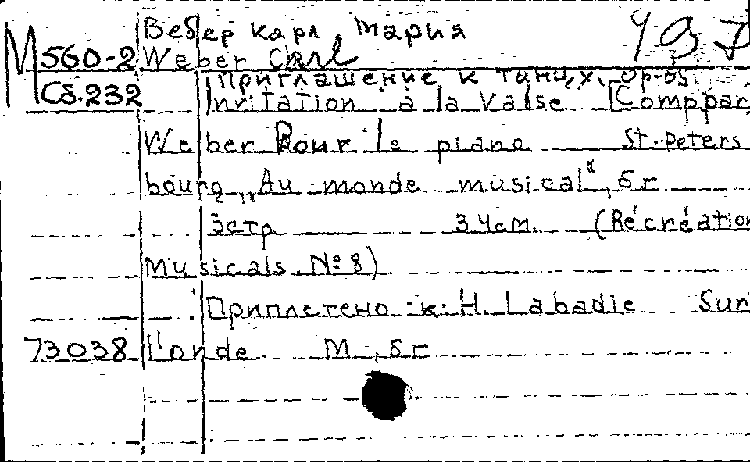 Вебер Карл Мария 197
М 560-2 Weber Carl
Приглашение к танцу, op. 65.
Сб.232 Invitation à la Valse [Comp par
Weber Pour le piano St.-Peters
bourg „Au monde musical“, б г
3стр 34см. (Récréation
Musicals №8)
Приплетено к: H. Labadie Sur
73038 l'onde М, б г